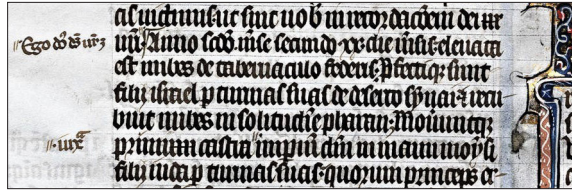 cis uictimis. ut sint uob̄ in recordacōem dei ur̄
Ego dn̄s ds̄ ur̄
uri. Anno scdō. mse secundo. xx. die m̄sis eleuata
est nubes de tabernaculo federis. Pfectiqꝫ sunt
filii israel p turmas suas de deserto synai ⁊ recu
buit nubes in solitudīe pharan. Mouerūtqꝫ
iuxᵃ
primum castra impiū dn̄i in manu moysi
filii iuda p turmas suas. quorum princeps er